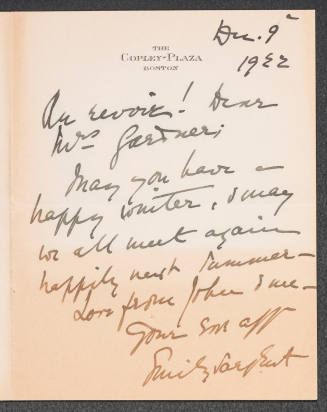 Dec. 9th
1922
THE
COPLEY-PLAZA
BOSTON
Au revoir! Dear
Mrs Gardner;
May you have a
happy winter, & may
we all meet again
happily next summer—
Love from John & me—
Your aff
Emily Sargent